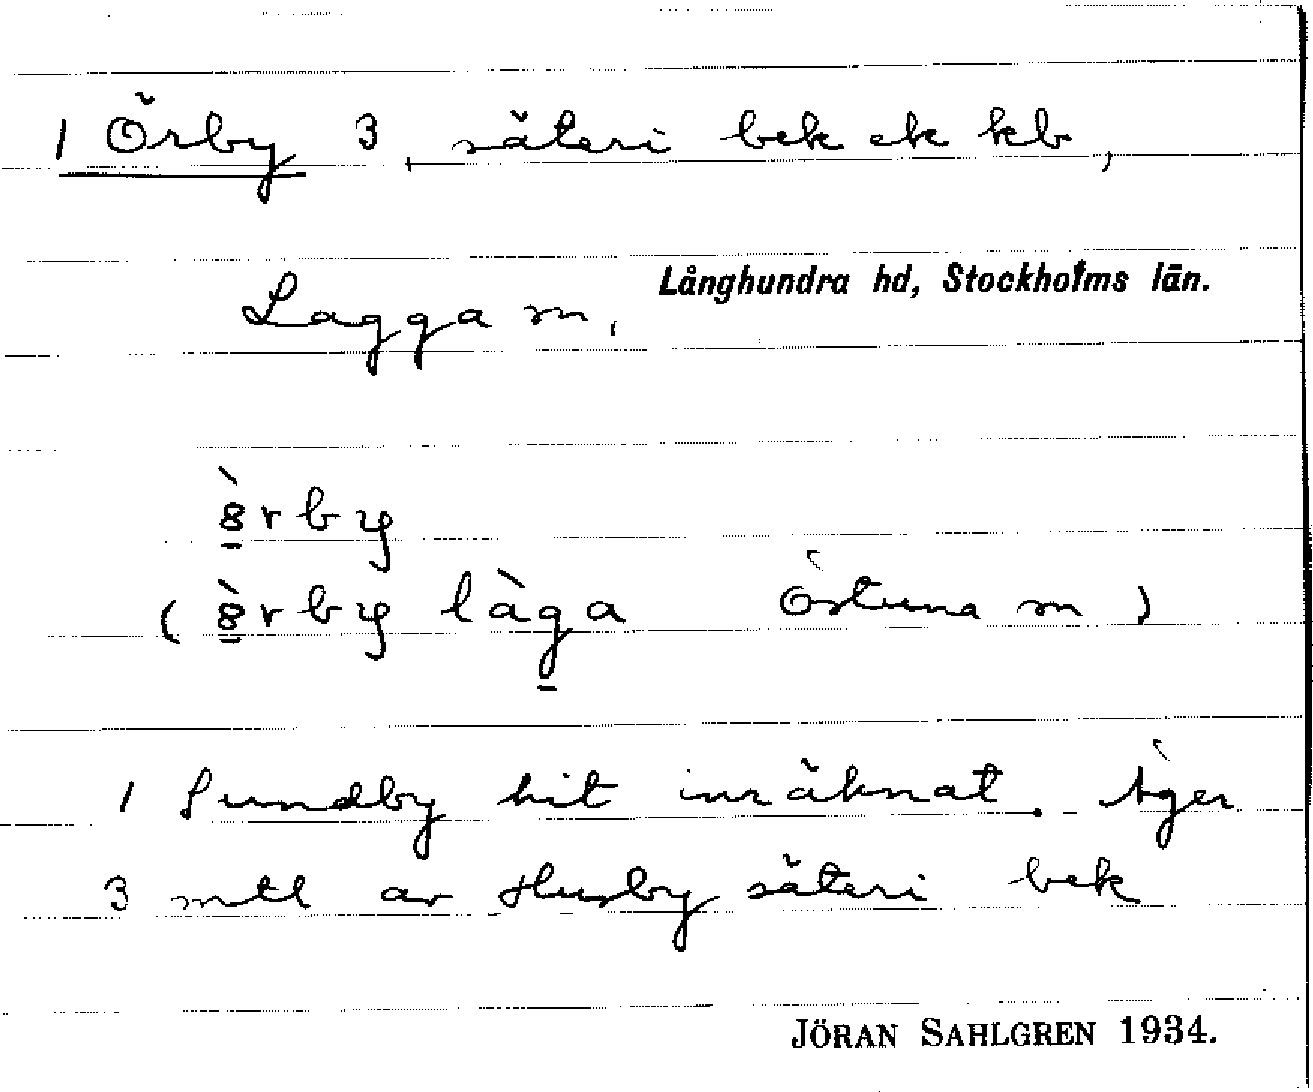 1 Örby 3, säteri bek ek kb,
Långhundra hd, Stockholms län.
Lagga sn,
ö̀rby
(ö̀rby làga Östuna sn)
1 Sundby hit inräknat. Äger
3 mtl av Husby säteri bek
JÖRAN SAHLGREN 1934.